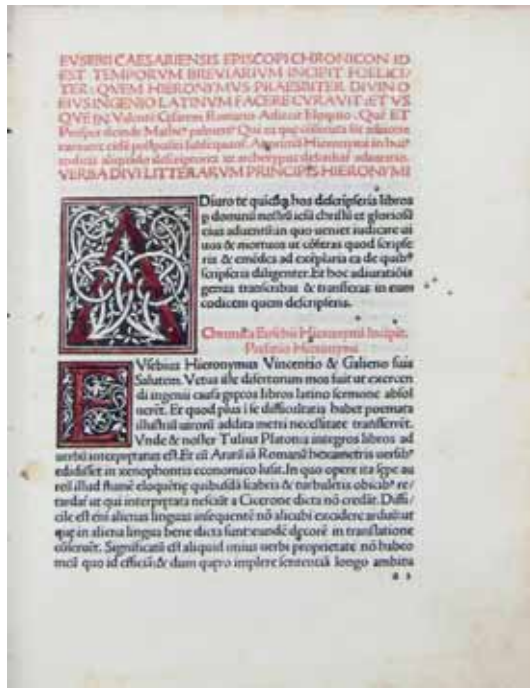 EVSEBII CAESARIENSIS EPISCOPI CHRONICON ID
EST TEMPORVM BREVIARIVM INCIPIT FOELICI
TER: QVEM HIERONYMVS PRAESBITER DIVINO
EIVS INGENIO LATINVM FACERE CVRAVIT: ET VS
QVE IN Valentē Cęsarem Romano Adiecit Eloquio. Quē ET
VERBA DIVI LITTERARVM PRINCIPIS HIERONYMI
A Diuro te quicūq hos descripseris libros
p dominū nostrū iesū christū et gloriosū
eius aduentū: in quo ueniet iudicare ui
uos & mortuos ut cōferas quod scripse
ris & emēdes ad exēplaria ea de quib⁹
scripseris diligenter. Et hoc adiuratiōis
genus transcribas & transferas in eum
codicem quem descripseris.
Hieronymi Incipit.
Prefatio Hieronymi
E Vsebius Hieronymus Vincentio & Galieno suis
Salutem. Vetus iste disertorum mos fuit ut exercen
di ingenii causa gręcos libros latino sermone absol
uerēt. Et quod plus ī se difficultatis habet poemata
illustriū uirorū addita metri necessitate transferrēt.
Vnde & noster Tulius Platonis integros libros ad
uerbū interpretatus est. Et cū Aratū iā Romanū hexametris uersib⁹
edidisset in xenophontis economico lusit. In quo opere ita sępe au
reū illud flumē eloquētię quibusdā scabris & turbulētis obicib⁹ re/
tardaī ut qui interpretata nesciūt a Cicerone dicta nō credāt. Diffi/
cile est enī alienas linguas insequentē nō alicubi excidere: arduū ut
que in aliena lingua bene dicta sunt eundē decorē in translatione
cōseruēt. Significatū est aliquid unius uerbi proprietate nō habeo
meū quo id efficiā: & dum quęro implere sententiā longo ambitu